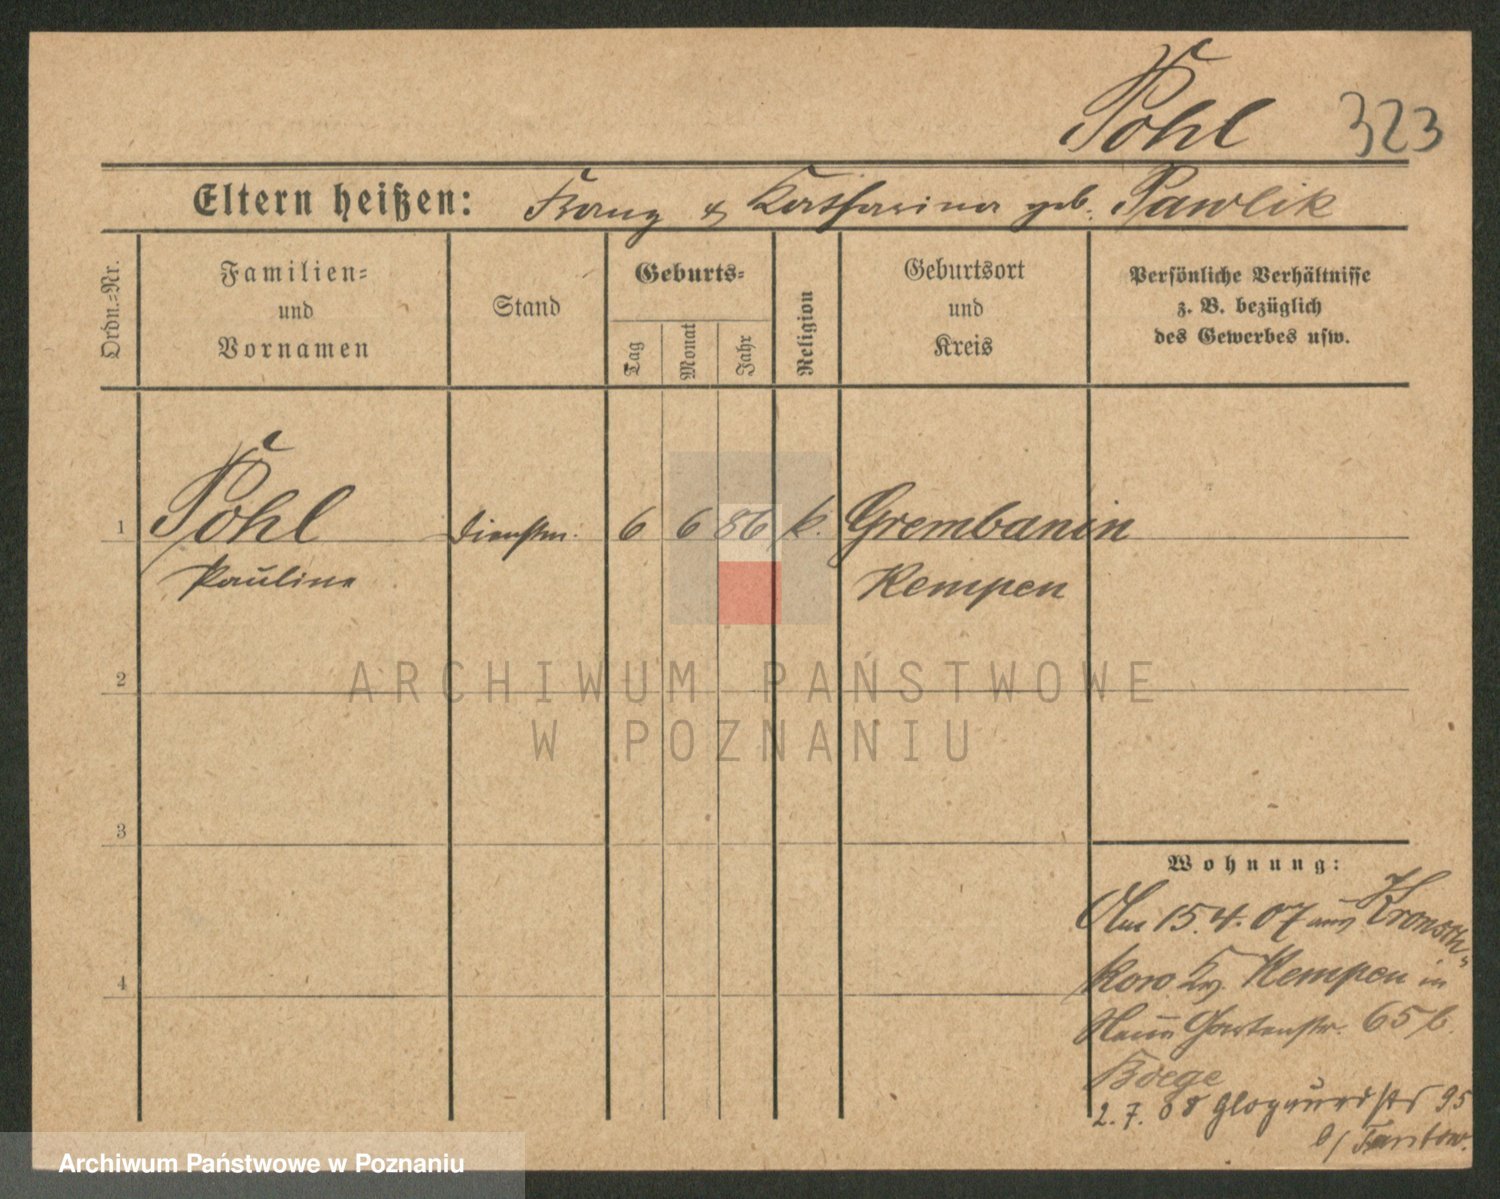 Pohl 323
Eltern heißen: Franz & Katharina geb. Pawlik
Ordn.=Nr.
Familien=
und
Vornamen
Stand
Geburts=
Tag
Monat
Jahr
Religion
Geburtsort
und
Kreis
Persönliche Verhältnisse
z. B. bezüglich
des Gewerbes usw.
1 Pohl Dienstm. 6 6 86 k. Grembanin
Pauline Kempen
2
3
4
Wohnung:
Am 15.4.07 aus
Kr. Kempen in
Gartenstr. 65 b.
Boege
2.7.08 95
b/
ARCHIWUM PAŃSTWOWE
W POZNANIU
Archiwum Państwowe w Poznaniu